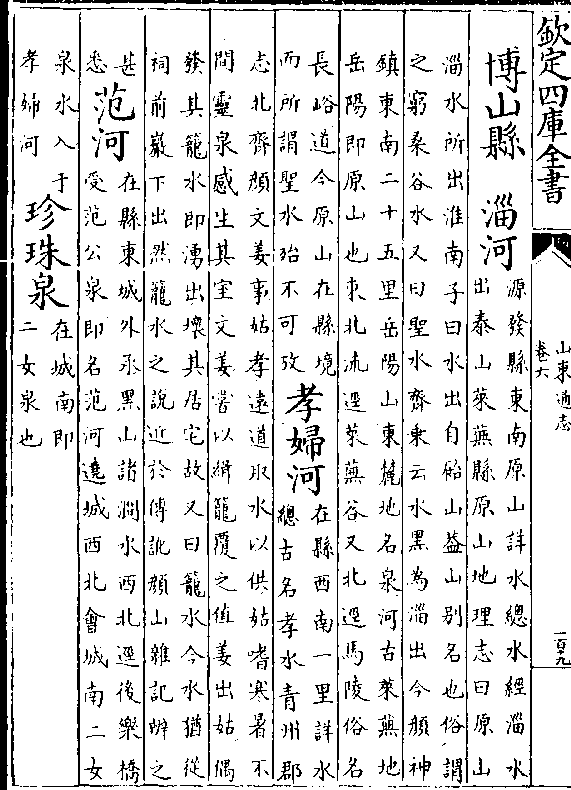 欽定四庫全書
山東通志
卷六
一百九
博山縣
淄河
源發縣東南原山詳水總水經淄水
出泰山萊蕪縣原山地理志曰原山
淄水所出淮南子曰水出自飴山益山別名也俗謂
之窮桑谷水又曰聖水齊乘云水黑為淄出今顔神
鎮東南二十五里岳陽山東麓地名泉河古萊蕪地
岳陽即原山也東北流逕萊蕪谷又北逕馬陵俗名
長峪道今原山在縣境
而所謂聖水殆不可攷
孝婦河
在縣西南一里詳水
總古名孝水青州郡
志北齊顔文姜事姑孝遠道取水以供姑嗜寒暑不
間靈泉感生其室文姜嘗以緝籠覆之值姜出姑偶
發其籠水即湧出壞其居宅故又曰籠水今水猶從
祠前巖下出然籠水之說近於傳訛顔山雜記辨之
甚
悉
范河
在縣東城外丞黑山諸澗水西北逕後樂橋
受范公泉即名范河遶城西北會城南二女
泉水入于
孝婦河
珍珠泉
在城南即
二女泉也